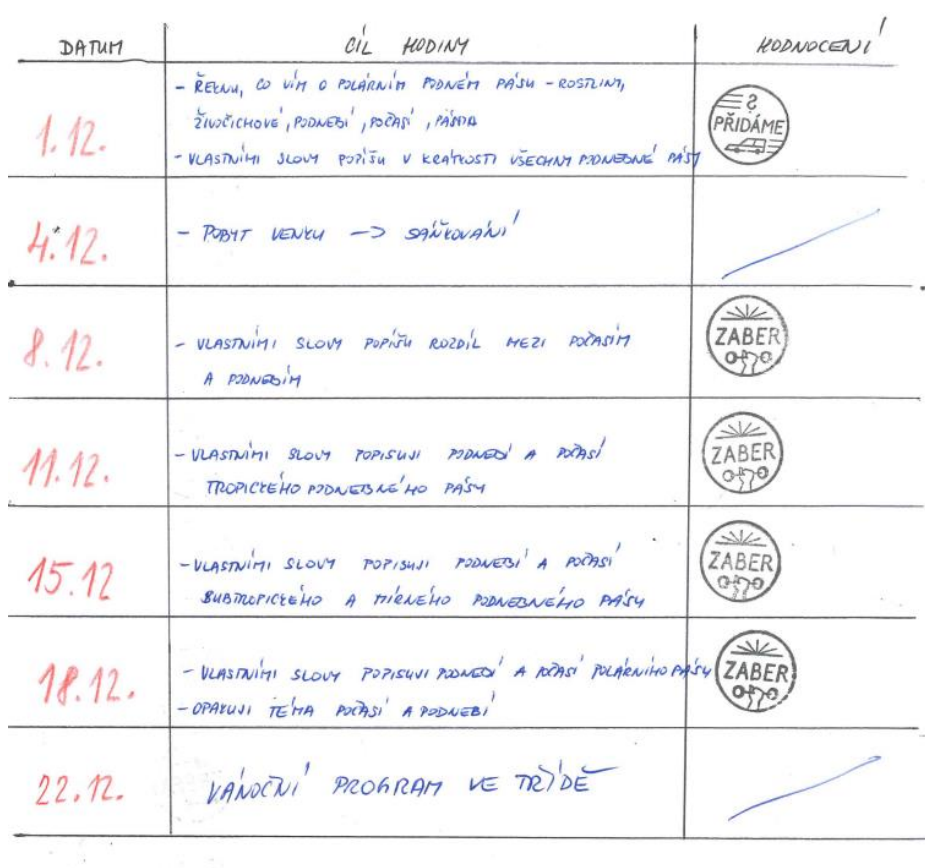 DATUM CÍL HODINY HODNOCENÍ
1.12.
- ŘEKNU, CO VÍM O POLÁRNÍM PODNEM PÁSU - ROSTLINY,
ŽIVOČICHOVÉ, PODNEBÍ, POČASÍ,
- VLASTNÍMI SLOVY POPÍŠU V KRÁTKOSTI VŠECHNY PODNEBNÉ PÁSY
? PŘIDÁME
4.12.
- POBYT VENKU -> SÁŇKOVÁNÍ
8.12.
- VLASTNÍMI SLOVY POPÍŠU ROZDÍL MEZI POČASÍM
A PODNEBÍM
ZABER
11.12.
- VLASTNÍMI SLOVY POPISUJI PODNEBÍ A POČASÍ
TROPICKÉHO PODNEBNÉHO PÁSU
ZABER
15.12
- VLASTNÍMI SLOVY POPISUJI PODNEBÍ A POČASÍ
SUBTROPICKÉHO A MÍRNÉHO PODNEBNÉHO PÁSU
ZABER
18.12.
- VLASTNÍMI SLOVY POPISUJI PODNEBÍ A POČASÍ POLÁRNÍHO PÁSU
- OPAKUJI TÉMA POČASÍ A PODNEBÍ
ZABER
22.12.
VÁNOČNÍ PROGRAM VE TŘÍDĚ